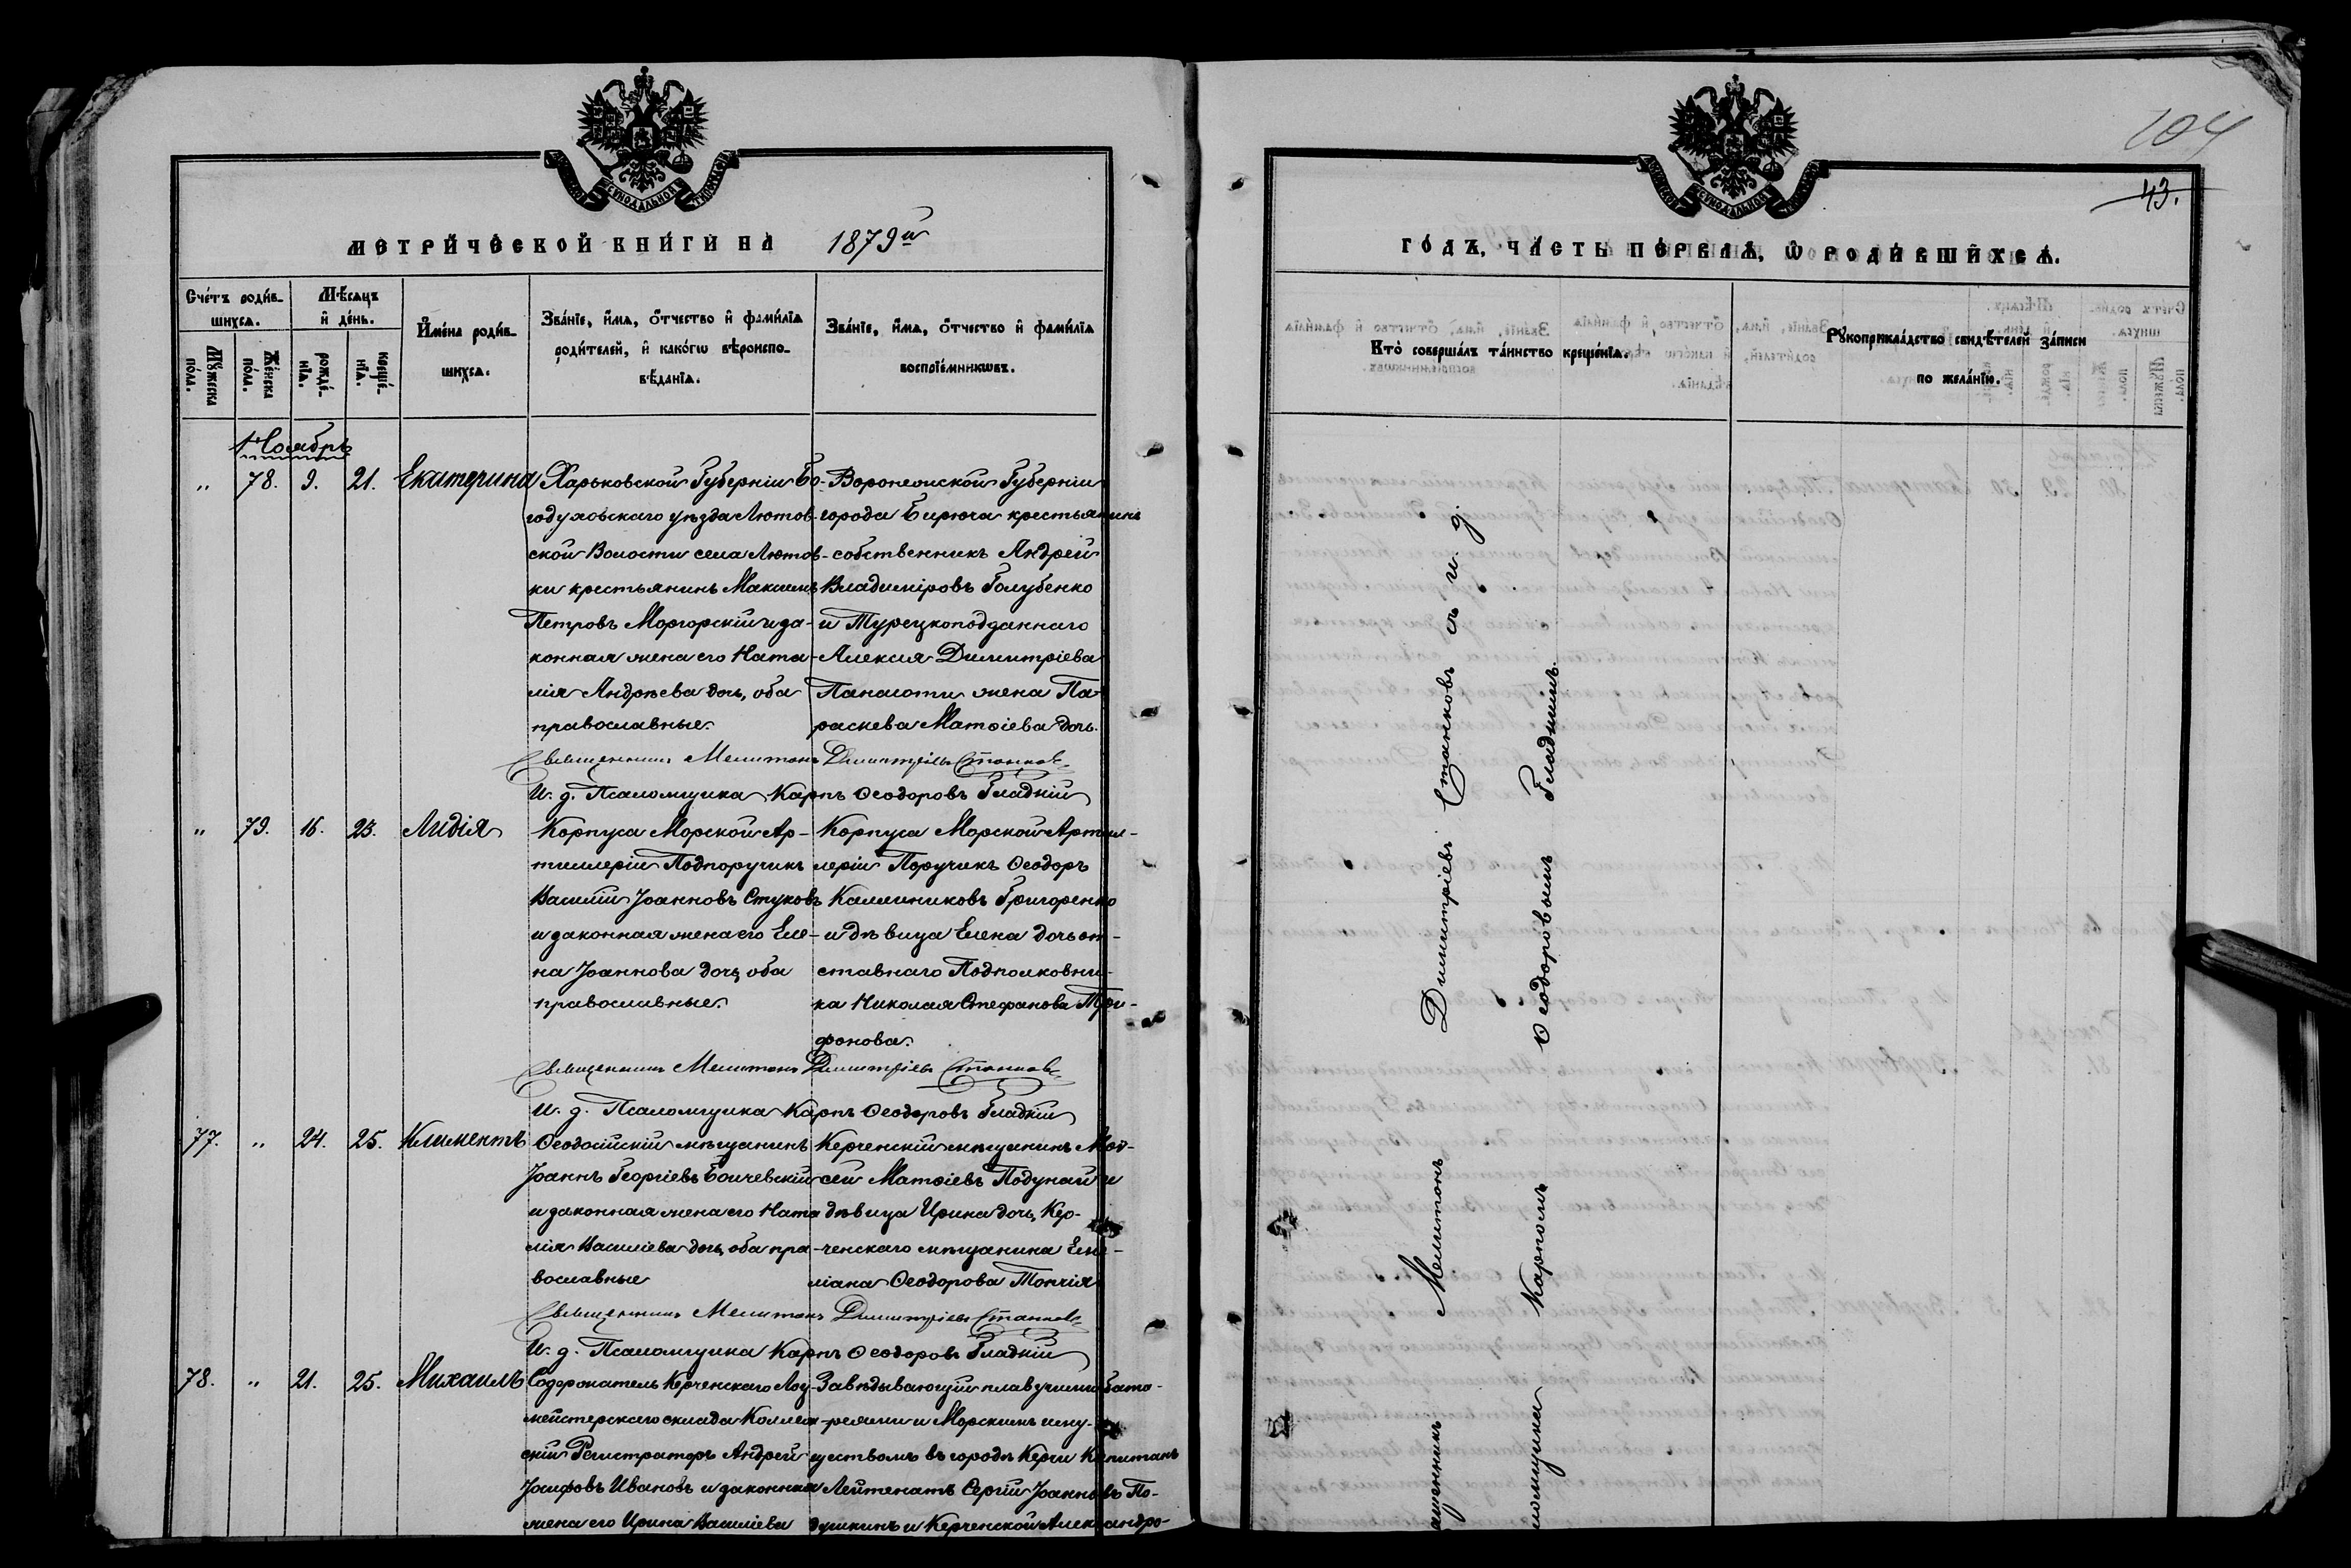 СѴНОДАЛЬНОЙ
МЕТРИ́ЧЕСКОЙ КНИ́ГИ НА 1879й
Сче́тъ роди́в-
шихсѧ.
Мѣ́сѧцъ
и҆ де́нь.
Мꙋ́жеска
пола.
Же́нска
по́ла.
рожде́-
нїѧ.
креще́-
нїѧ.
И҆мена̀ роди́в-
шихсѧ.
Зва́нїе, и҆́мѧ, о҆́тчество и҆ фами́лїѧ
роди́телей, и҆ како́гѡ вѣроиспо-
вѣ́данїѧ.
Зва́нїе, и҆́мѧ, о҆́тчество и҆ фами́лїѧ
воспрїе́мникѡвъ.
Ноябрь
" 78. 9. 21. Екатерина
Харьковской Губерніи Бо-
годуховскаго уѣзда Лютов-
ской Волости села Лютов-
ки крестьянинъ Максимъ
Петровъ Моргорскій и за-
конная жена его Ната-
лія Андреева дочь, оба
православные.
Воронежской Губерніи
города Бирюча крестьянинъ
собственникъ Андрей
Владиміровъ Голубенко
и Турецкоподданнаго
Алексія Димитріева
Панаіоти жена Па-
раскева Матѳіева дочь.
Священникъ Мелитонъ Димитріевъ Станковъ
И. д. Псаломщика Карпъ Ѳеодоровъ Гладкій
" 79. 16. 23. Лидія
Корпуса Морской Ар-
тиллеріи Подпоручикъ
Василій Іоанновъ Стуковъ
и законная жена его Еле-
на Іоаннова дочь, оба
православные.
Корпуса Морской Артил-
леріи Поручикъ Ѳеодоръ
Каллиниковъ Григоренко
и дѣвица Елена дочь от-
ставнаго Подполковни-
ка Николая Стефанова Три-
фонова.
Священникъ Мелитонъ Димитріевъ Станковъ
И. д. Псаломщика Карпъ Ѳеодоровъ Гладкій
77. " 24. 25. Климентъ
Ѳеодосійскій мѣщанинъ
Іоаннъ Георгіевъ Боичевскій
и законная жена его Ната
лія Василіева дочь, оба пра-
вославные
Керченскій мѣщанинъ Мой-
сей Матѳіевъ Подунай и
дѣвица Ирина дочь, Кер-
ченскаго мѣщанина Еми-
ліана Ѳеодорова Топчія
Священникъ Мелитонъ Димитріевъ Станковъ
И. д. Псаломщика Карпъ Ѳеодоровъ Гладкій
78. " 21. 25. Михаилъ
Содержатель Керченскаго Лоц-
мейстерскаго склада Коллеж-
скій Регистраторъ Андрей
Іосифовъ Ивановъ и законная
жена его Ирина Василіева
Завѣдывающій плавучими бата-
реями и Морскимъ иму-
ществомъ въ городѣ Керчи Капитанъ
Лейтенантъ Сергій Іоанновъ По-
душкинъ и Керченской Александро-
104
43.
СѴНОДАЛЬНОЙ
ГО́ДЪ, ЧА́СТЬ ПЕ́РВАѦ, Ѡ҆ РОДИ́ВШИХСѦ.
Кто̀ соверша́лъ та́инство креще́нїѧ.
Рꙋкоприкла́дство свидѣ́телей за́писи
по жела́нїю.
Мелитонъ Димитріевъ Станковъ съ и. д.
Карпомъ Ѳеодоровымъ Гладкимъ.